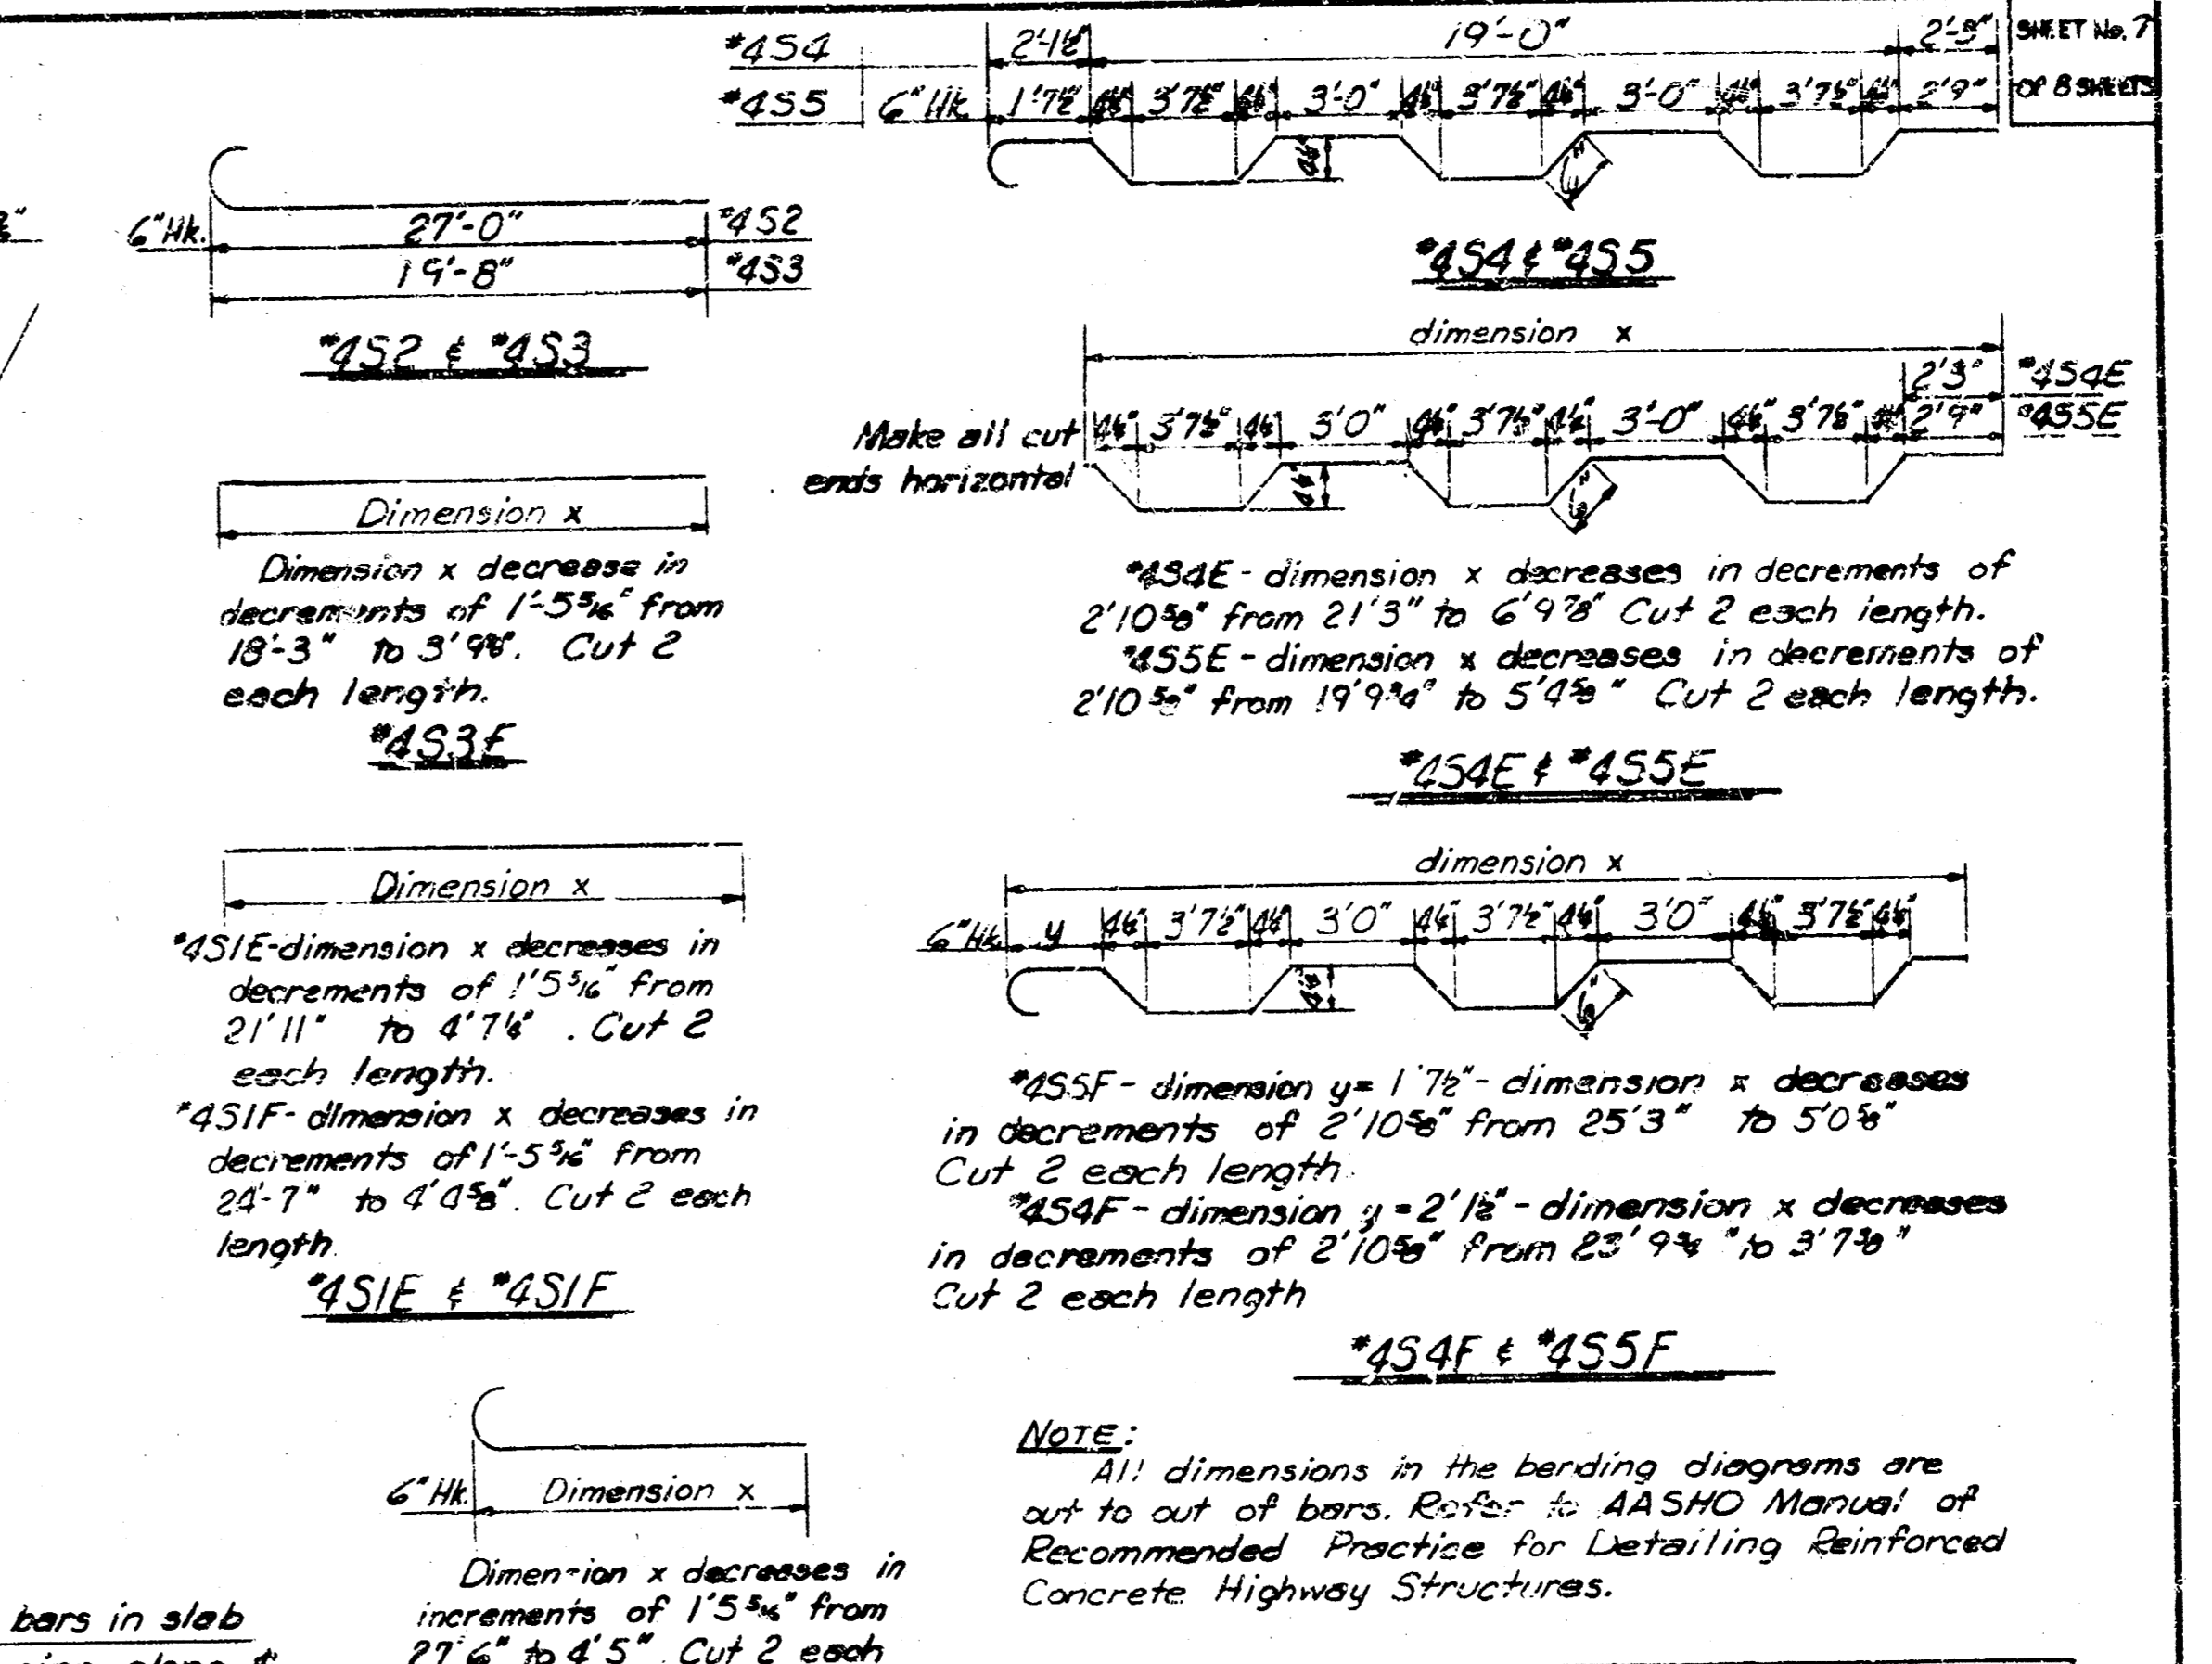 SHEET No. 7
OF 8 SHEETS
#4S4 2'-1½" 19'-0"
#4S5 6"Hk. 1'-7½" 4½" 3'7½" 4½" 3'-0" 4½" 3'7½" 4½" 3'-0" 4½" 3'7½" 4½" 2'9"
4½" 6"
#4S4 & #4S5
6"Hk. 27'-0" #4S2
19'-8" #4S3
#4S2 & #4S3
dimension x
2'3" #4S4E
4½" 3'7½" 4½" 3'0" 4½" 3'7½" 4½" 3'-0" 4½" 3'7½" 2'9" #4S5E
Make all cut
ends horizontal
6"
#4S4E - dimension x decreases in decrements of
2'10⅝" from 21'3" to 6'9⅞" Cut 2 each length.
#4S5E - dimension x decreases in decrements of
2'10⅝" from 19'9¾" to 5'4⅝" Cut 2 each length.
#4S4E & #4S5E
Dimension x
Dimension x decrease in
decrements of 1'-5 5/16" from
18'-3" to 3'9⅞". Cut 2
each length.
#4S3E
Dimension x
#4S1E-dimension x decreases in
decrements of 1'5 5/16" from
21'11" to 4'7¼" . Cut 2
each length.
#4S1F- dimension x decreases in
decrements of 1'-5 5/16" from
24'-7" to 4'4⅝". Cut 2 each
length.
#4S1E & #4S1F
dimension x
6"Hk. y 4½" 3'7½" 4½" 3'0" 4½" 3'7½" 4½" 3'0" 4½" 3'7½" 4½"
6"
#4S5F - dimension y= 1'7½"- dimension x decreases
in decrements of 2'10⅝" from 25'3" to 5'0⅝"
Cut 2 each length.
#4S4F - dimension y = 2'1½" - dimension x decreases
in decrements of 2'10⅝" from 23'9¾" to 3'7⅜"
Cut 2 each length
#4S4F & #4S5F
6"Hk. Dimension x
Dimension x decreases in
increments of 1'5 5/16" from
27'6" to 4'5". Cut 2 each
NOTE:
All dimensions in the bending diagrams are
out to out of bars. Refer to AASHO Manual of
Recommended Practice for Detailing Reinforced
Concrete Highway Structures.
bars in slab